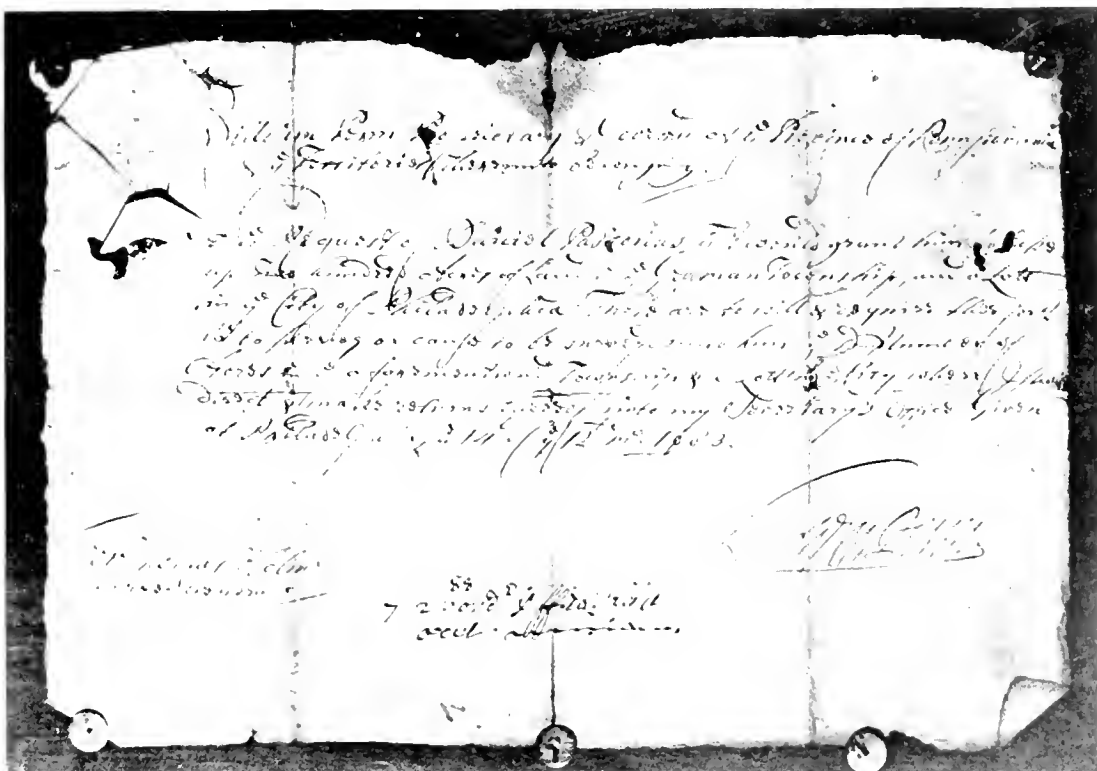 William Penn Proprietary & Govern of ye Province of Pennsilvania
& ye Territories thereunto belonging
At ye Request of Daniel Pastorius yt I would grant him to take
up Two hundred Acres of Land in ye German Township, and a Lott
in ye City of Philadelphia These are to will & require thee forth
wth to survey or cause to be surveyed unto him ye sd Number of
Acres in ye aforementioned Township & a Lott in ye City where I shall
direct & make returns thereof into my Secretary's Office Given
at Philadelphia ye 14th of ye 12th mo 1683.
Wm Penn
Thomas Holme